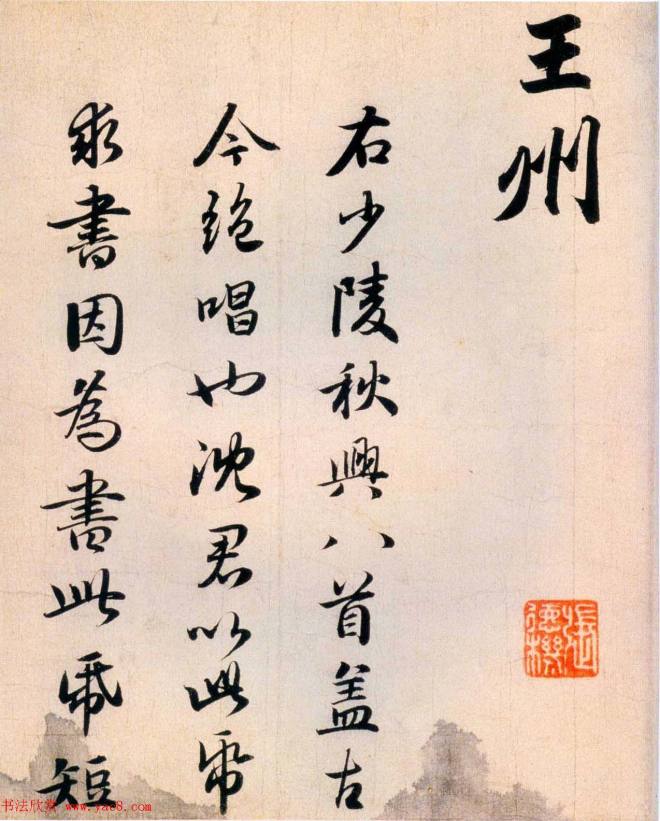 王州
右少陵秋興八首盖古
今絶唱也沈君以此帋
求書因為書此帋短
书法欣赏 www.yac8.com